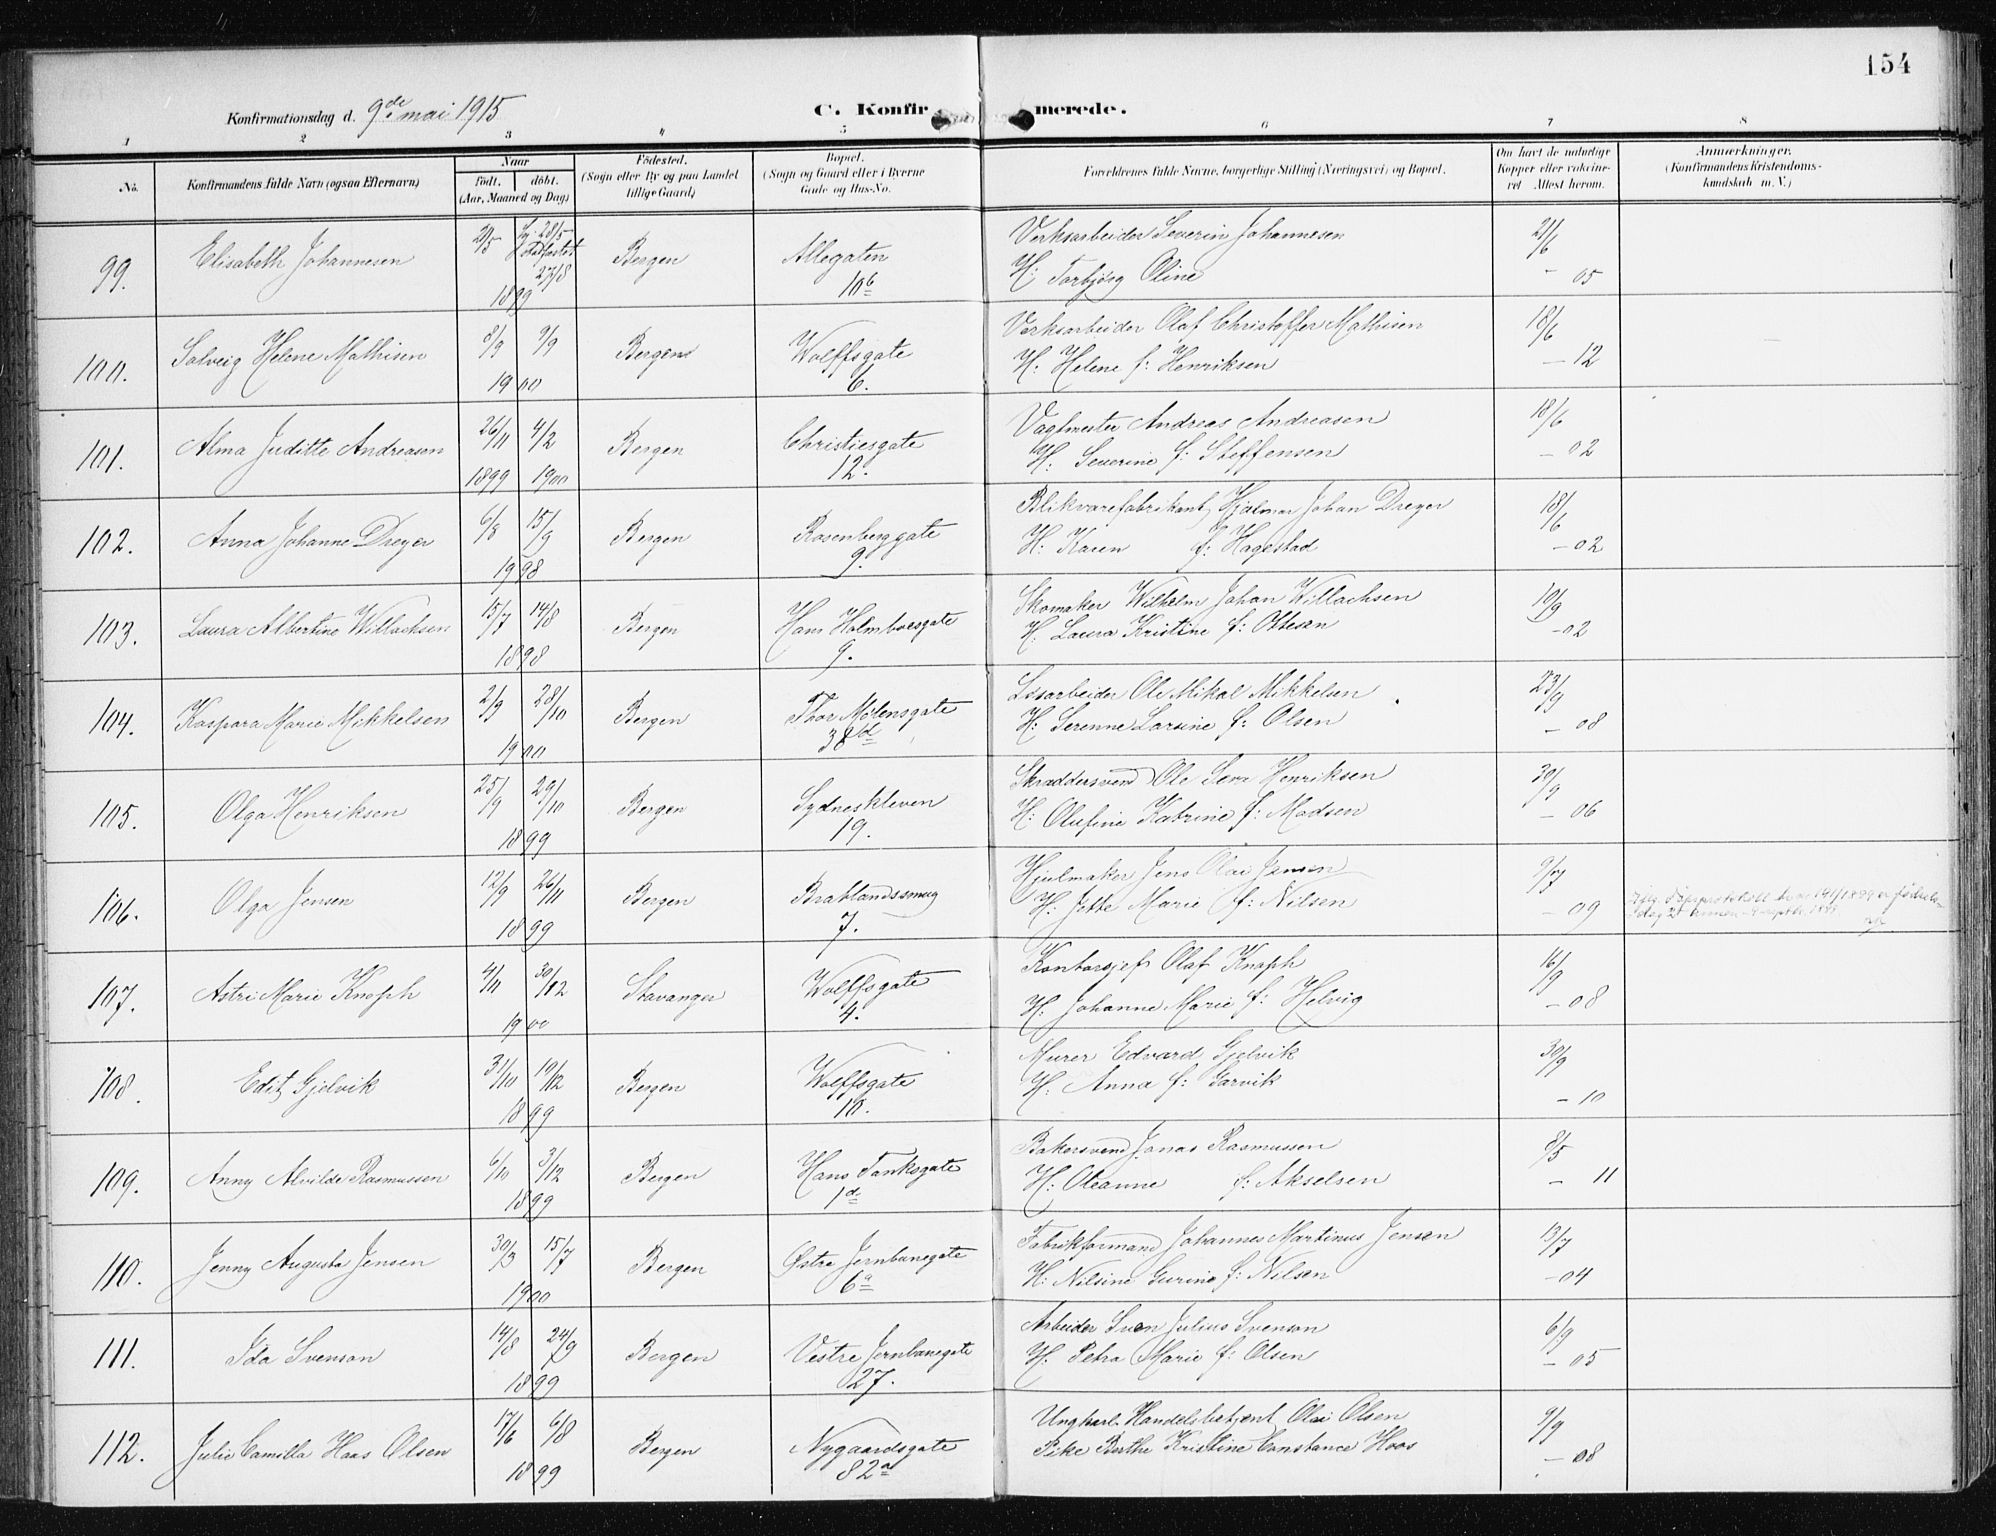 154
Konfirmationsdag d. 9de mai 1915
C. Konfirmerede.
1 2 3 4 5 6 7 8
No.
Konfirmandens fulde Navn (ogsaa Efternavn)
Naar
födt. döbt.
(Aar, Maaned og Dag)
Födested.
(Sogn eller By og paa Landet tillige Gaard)
Bopæl.
(Sogn og Gaard eller i Byerne Gade og Hus-No.
Foreldrenes fulde Navne, borgerlige Stilling (Næringsvei) og Bopæl.
Om havt de naturlige Kopper eller vakcineret Attest herom.
Anmærkninger.
(Konfirmandens Kristendomskundskab m. V.)
99. Elisabeth Johannesen 28/5 27/8 1899 Bergen Allegaten 10b
Verksarbeider Severin Johannesen 2/6
H: Torbjørg Oline - 05
100. Solveig Helene Mathisen 8/9 9/9 1900 Bergen Wolffsgate 6.
Verksarbeider Olaf Christoffer Mathisen 18/6
H: Helene f: Henriksen - 12
101. Alma Juditte Andreasen 26/11 1899 4/2 1900 Bergen Christiesgate 12.
Vagtmester Andreas Andreasen 18/6
H: Severine f: Steffensen - 02
102. Anna Johanne Dreyer 6/8 15/9 1998 Bergen Rosenberggate 9.
Blikvarefabrikant Hjalmar Johan Dreyer 18/6
H: Karen f: Hagestad - 02
103. Laura Albertine Willachsen 15/7 14/8 1898 Bergen Hans Holmboesgate 9.
Skomaker Wilhelm Johan Willachsen 10/9
H: Laura Kristine f: Ottesen - 02
104. Kaspara Marie Mikkelsen 2/9 28/10 1900 Bergen Thor Mölensgate 38d
Løsarbeider Ole Mikal Mikkelsen 23/9
H: Serenne Larsine f: Olsen - 08
105. Olga Henriksen 25/9 29/10 1899 Bergen Sydneskleven 19.
Skraddersvend Ole Sern Henriksen 30/9
H: Olufine Katrine f: Madsen - 06
106. Olga Jensen 12/9 26/11 1899 Bergen Bratlandssmug 7.
Hjulmaker Jens Olai Jensen 9/7
H: Jette Marie f: Nilsen - 09
107. Astri Marie Knoph 4/11 30/12 1900 Stavanger Wolffsgate 4.
Kontorsjef Olaf Knoph 16/9
H: Johanne Marie f: Helvig - 08
108. Edit Gjelvik 31/10 10/12 1899 Bergen Wolffsgate 10.
Murer Edvard Gjelvik 30/9
H: Anna f: Garvik - 10
109. Anny Alvilde Rasmussen 6/10 3/12 1899 Bergen Hans Tanksgate 1d
Bakersvend Jonas Rasmussen 8/5
H: Oleanne f: Akselsen - 11
110. Jenny Augusta Jensen 30/3 15/7 1900 Bergen Østre Jernbanegate 6a
Fabrikformand Johannes Martinus Jensen 13/7
H: Nilsine Gurine f: Nilsen - 04
111. Ida Svenson 14/8 24/9 1899 Bergen Vestre Jernbanegate 27.
Arbeider Sven Julius Svenson 6/9
H: Petra Marie f: Olsen - 05
112. Julie Camilla Haas Olsen 17/6 6/8 1899 Bergen Nygaardsgate 82a
Ungkarl Handelsbetjent Olai Olsen 9/9
Pike Berthe Kristine Constance Haas - 08